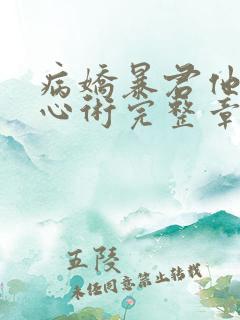 病嬌暴君他
心術完整章
五陵
未经同意禁止转载